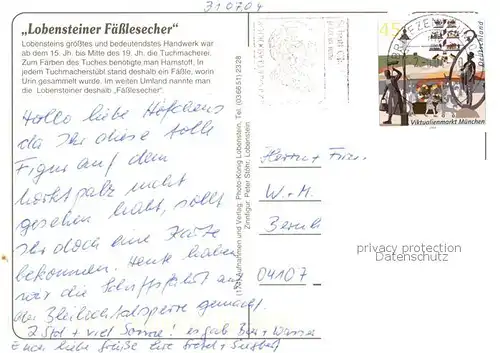 310704
„Lobensteiner Fäßlesecher"
Lobensteins größtes und bedeutendstes Handwerk war
ab dem 15. Jh. bis Mitte des 19. Jh. die Tuchmacherei.
Zum Färben des Tuches benötigte man Harnstoff. In
jedem Tuchmacherstübl stand deshalb ein Fäßle, worin
Urin gesammelt wurde. Im weiten Umland nannte man
die Lobensteiner deshalb „Fäßlesecher".
Hallo liebe
da Ihr diese tolle
Figur auf dem
nicht
gesehen habt, sollt
Ihr doch eine Karte
bekommen. Heute haben
wir die Schiffsfahrt auf
der Bleilochtalsperre gemacht.
2 Std + viel Sonne! es gab Bier + Wasser
Euch liebe Grüße Eure
Aufnahmen und Verlag: Photo-König Lobenstein, Tel. (036651) 2328
Zinnfigur: Peter Stöhr, Lobenstein
45
Deutschland
Viktualienmarkt München
Herrn + Frau
W. + M.
04107
privacy protection
Datenschutz